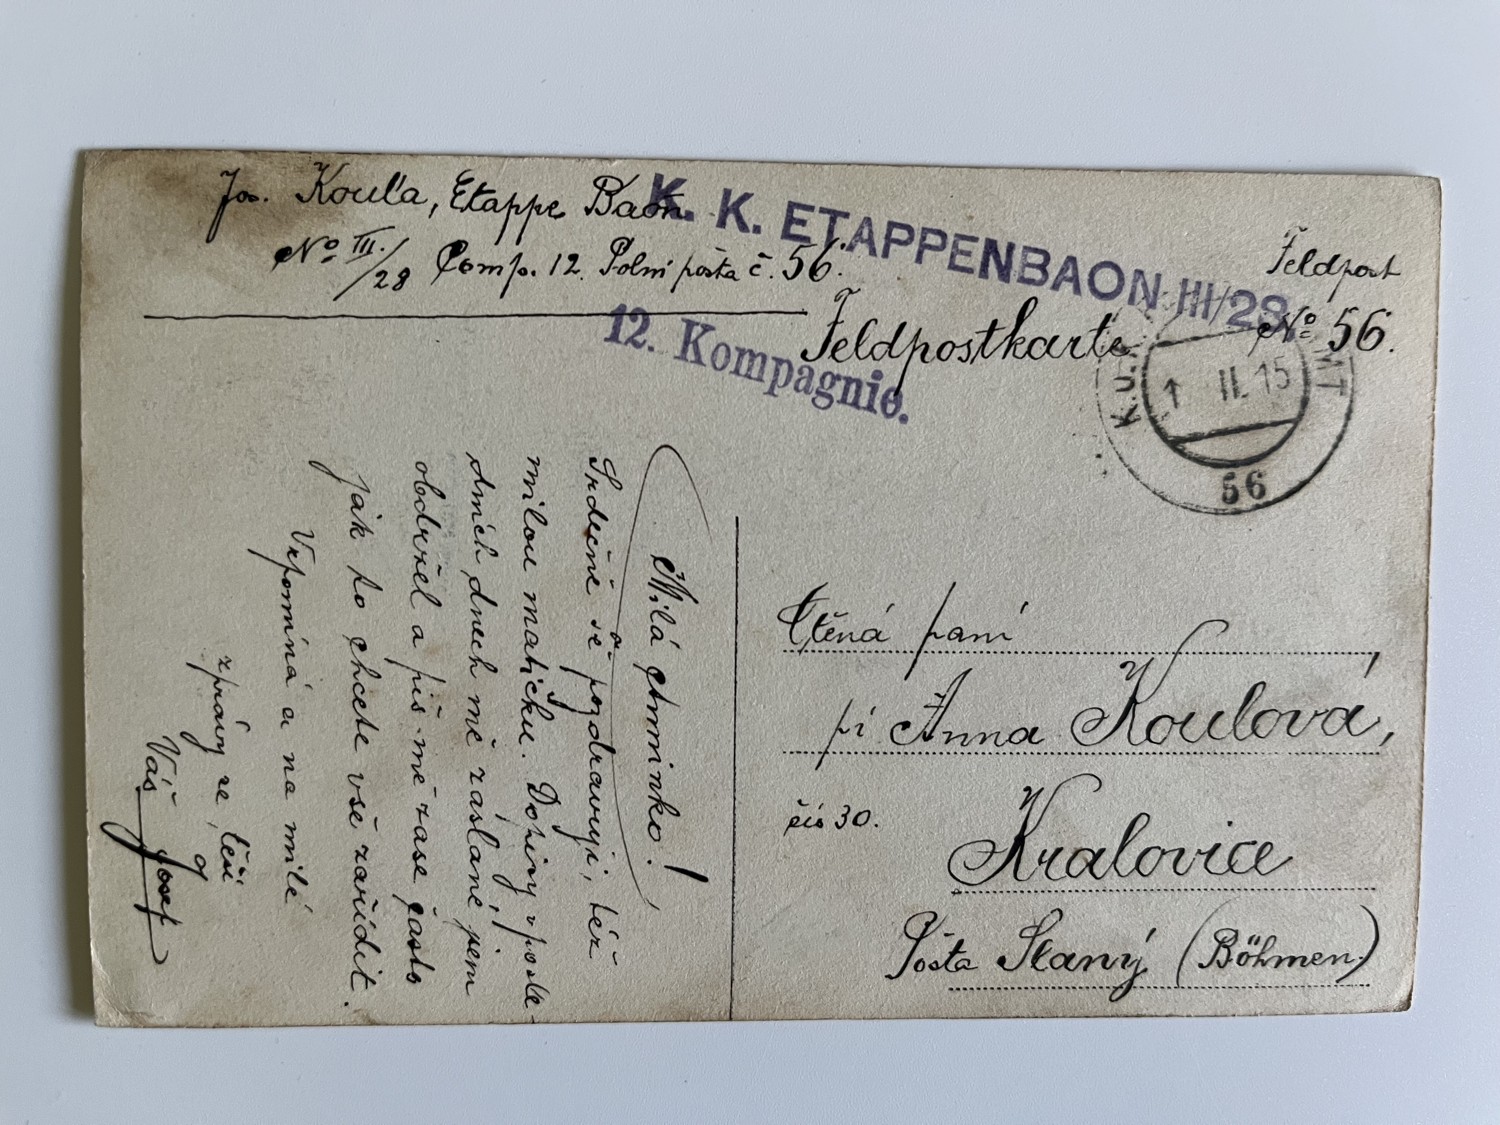 Jos. Kouľa, Etappe Baon
No III./28 Comp. 12. Polní pošta č. 56.
K. K. ETAPPENBAON III/28.
12. Kompagnie.
Feldpostkarte
Feldpost
No 56.
K.u.K. MT
1 II. 15
56
Milá Anninko!
Srdečně se pozdravuji, též a
milou matičku. Dopisy v posle-
dních dnech mě zaslané jsem
obdržel a piš mě zase často
jak to chcete vše zařídit.
Vzpomíná a na milé
zprávy se těší
Váš Josef
Ctěná paní
pí Anna Koulová,
čís 30.
Kralovice
Pošta Slaný (Böhmen.)